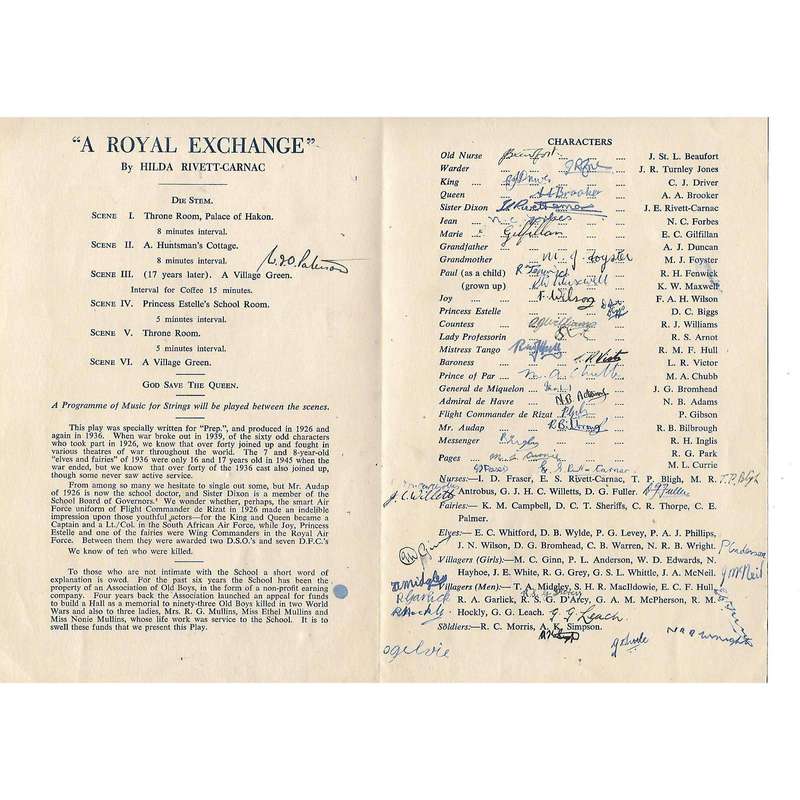 "A ROYAL EXCHANGE"
By HILDA RIVETT-CARNAC
DIE STEM.
SCENE I. Throne Room, Palace of Hakon.
8 minutes interval.
SCENE II. A Huntsman's Cottage.
8 minutes interval.
SCENE III. (17 years later). A Village Green.
Interval for Coffee 15 minutes.
SCENE IV. Princess Estelle's School Room.
5 minutes interval.
SCENE V. Throne Room.
5 minutes interval.
SCENE VI. A Village Green.
GOD SAVE THE QUEEN.
A Programme of Music for Strings will be played between the scenes.
This play was specially written for "Prep.", and produced in 1926 and
again in 1936. When war broke out in 1939, of the sixty odd characters
who took part in 1926, we know that over forty joined up and fought in
various theatres of war throughout the world. The 7 and 8-year-old
"elves and fairies" of 1936 were only 16 and 17 years old in 1945 when the
war ended, but we know that over forty of the 1936 cast also joined up,
though some never saw active service.
From among so many we hesitate to single out some, but Mr. Audap
of 1926 is now the school doctor, and Sister Dixon is a member of the
School Board of Governors. We wonder whether, perhaps, the smart Air
Force uniform of Flight Commander de Rizat in 1926 made an indelible
impression upon those youthful actors—for the King and Queen became a
Captain and a Lt./Col. in the South African Air Force, while Joy, Princess
Estelle and one of the fairies were Wing Commanders in the Royal Air
Force. Between them they were awarded two D.S.O.'s and seven D.F.C.'s
We know of ten who were killed.
To those who are not intimate with the School a short word of
explanation is owed. For the past six years the School has been the
property of an Association of Old Boys, in the form of a non-profit earning
company. Four years back the Association launched an appeal for funds
to build a Hall as a memorial to ninety-three Old Boys killed in two World
Wars and also to three ladies, Mrs. R. G. Mullins, Miss Ethel Mullins and
Miss Nonie Mullins, whose life work was service to the School. It is to
swell these funds that we present this Play.
CHARACTERS
Old Nurse Beaufort .... .... J. St. L. Beaufort
Warder .... .... .... J. R. Turnley Jones
King .... CJDriver .... .... C. J. Driver
Queen .... AABrooker .... A. A. Brooker
Sister Dixon .... J. E. Rivett-Carnac
Jean .... N. C. Forbes .... N. C. Forbes
Marie .... Gilfillan .... .... E. C. Gilfillan
Grandfather .... .... .... A. J. Duncan
Grandmother .... M. J. Foyster .... M. J. Foyster
Paul (as a child) R Fenwick .... R. H. Fenwick
(grown up) KW Maxwell .... K. W. Maxwell
Joy .... F. Wilson .... F. A. H. Wilson
Princess Estelle .... .... D. C. Biggs
Countess .... RJWilliams .... R. J. Williams
Lady Professorin .... .... R. S. Arnot
Mistress Tango .... .... R. M. F. Hull
Baroness .... .... L. R. Victor .... L. R. Victor
Prince of Par .... M. A. Chubb .... M. A. Chubb
General de Miquelon .... .... J. G. Bromhead
Admiral de Havre .... N.B Adams .... N. B. Adams
Flight Commander de Rizat .... .... P. Gibson
Mr. Audap .... .... R. B. Bilbrough
Messenger .... R Inglis .... .... R. H. Inglis
Pages .... .... .... R. G. Park
M. L. Currie
Nurses:—I. D. Fraser, E. S. Rivett-Carnac, T. P. Bligh, M. R. T.P.Bligh
Antrobus, G. J. H. C. Willetts, D. G. Fuller. D.G Fuller
Fairies:—K. M. Campbell, D. C. T. Sheriffs, C. R. Thorpe, C. E.
Palmer.
Elves:—E. C. Whitford, D. B. Wylde, P. G. Levey, P. A. J. Phillips,
J. N. Wilson, D. G. Bromhead, C. B. Warren, N. R. B. Wright.
Villagers (Girls):—M. C. Ginn, P L. Anderson, W. D. Edwards, N.
Hayhoe, J. E. White, R. G. Grey, G. S. L. Whittle, J. A. McNeil.
Villagers (Men):—T. A. Midgley, S. H. R. MacIldowie, E. C. F. Hull,
R. A. Garlick, R. S. G. D'Arcy, G. A. M. McPherson, R. M.
Hockly, G. G. Leach. G. G. Leach.
Soldiers:—R. C. Morris, A. K. Simpson.
P L Anderson
J McNeil
a midgley
R Garlick
R Hockly
N R B Wright
ogilvie